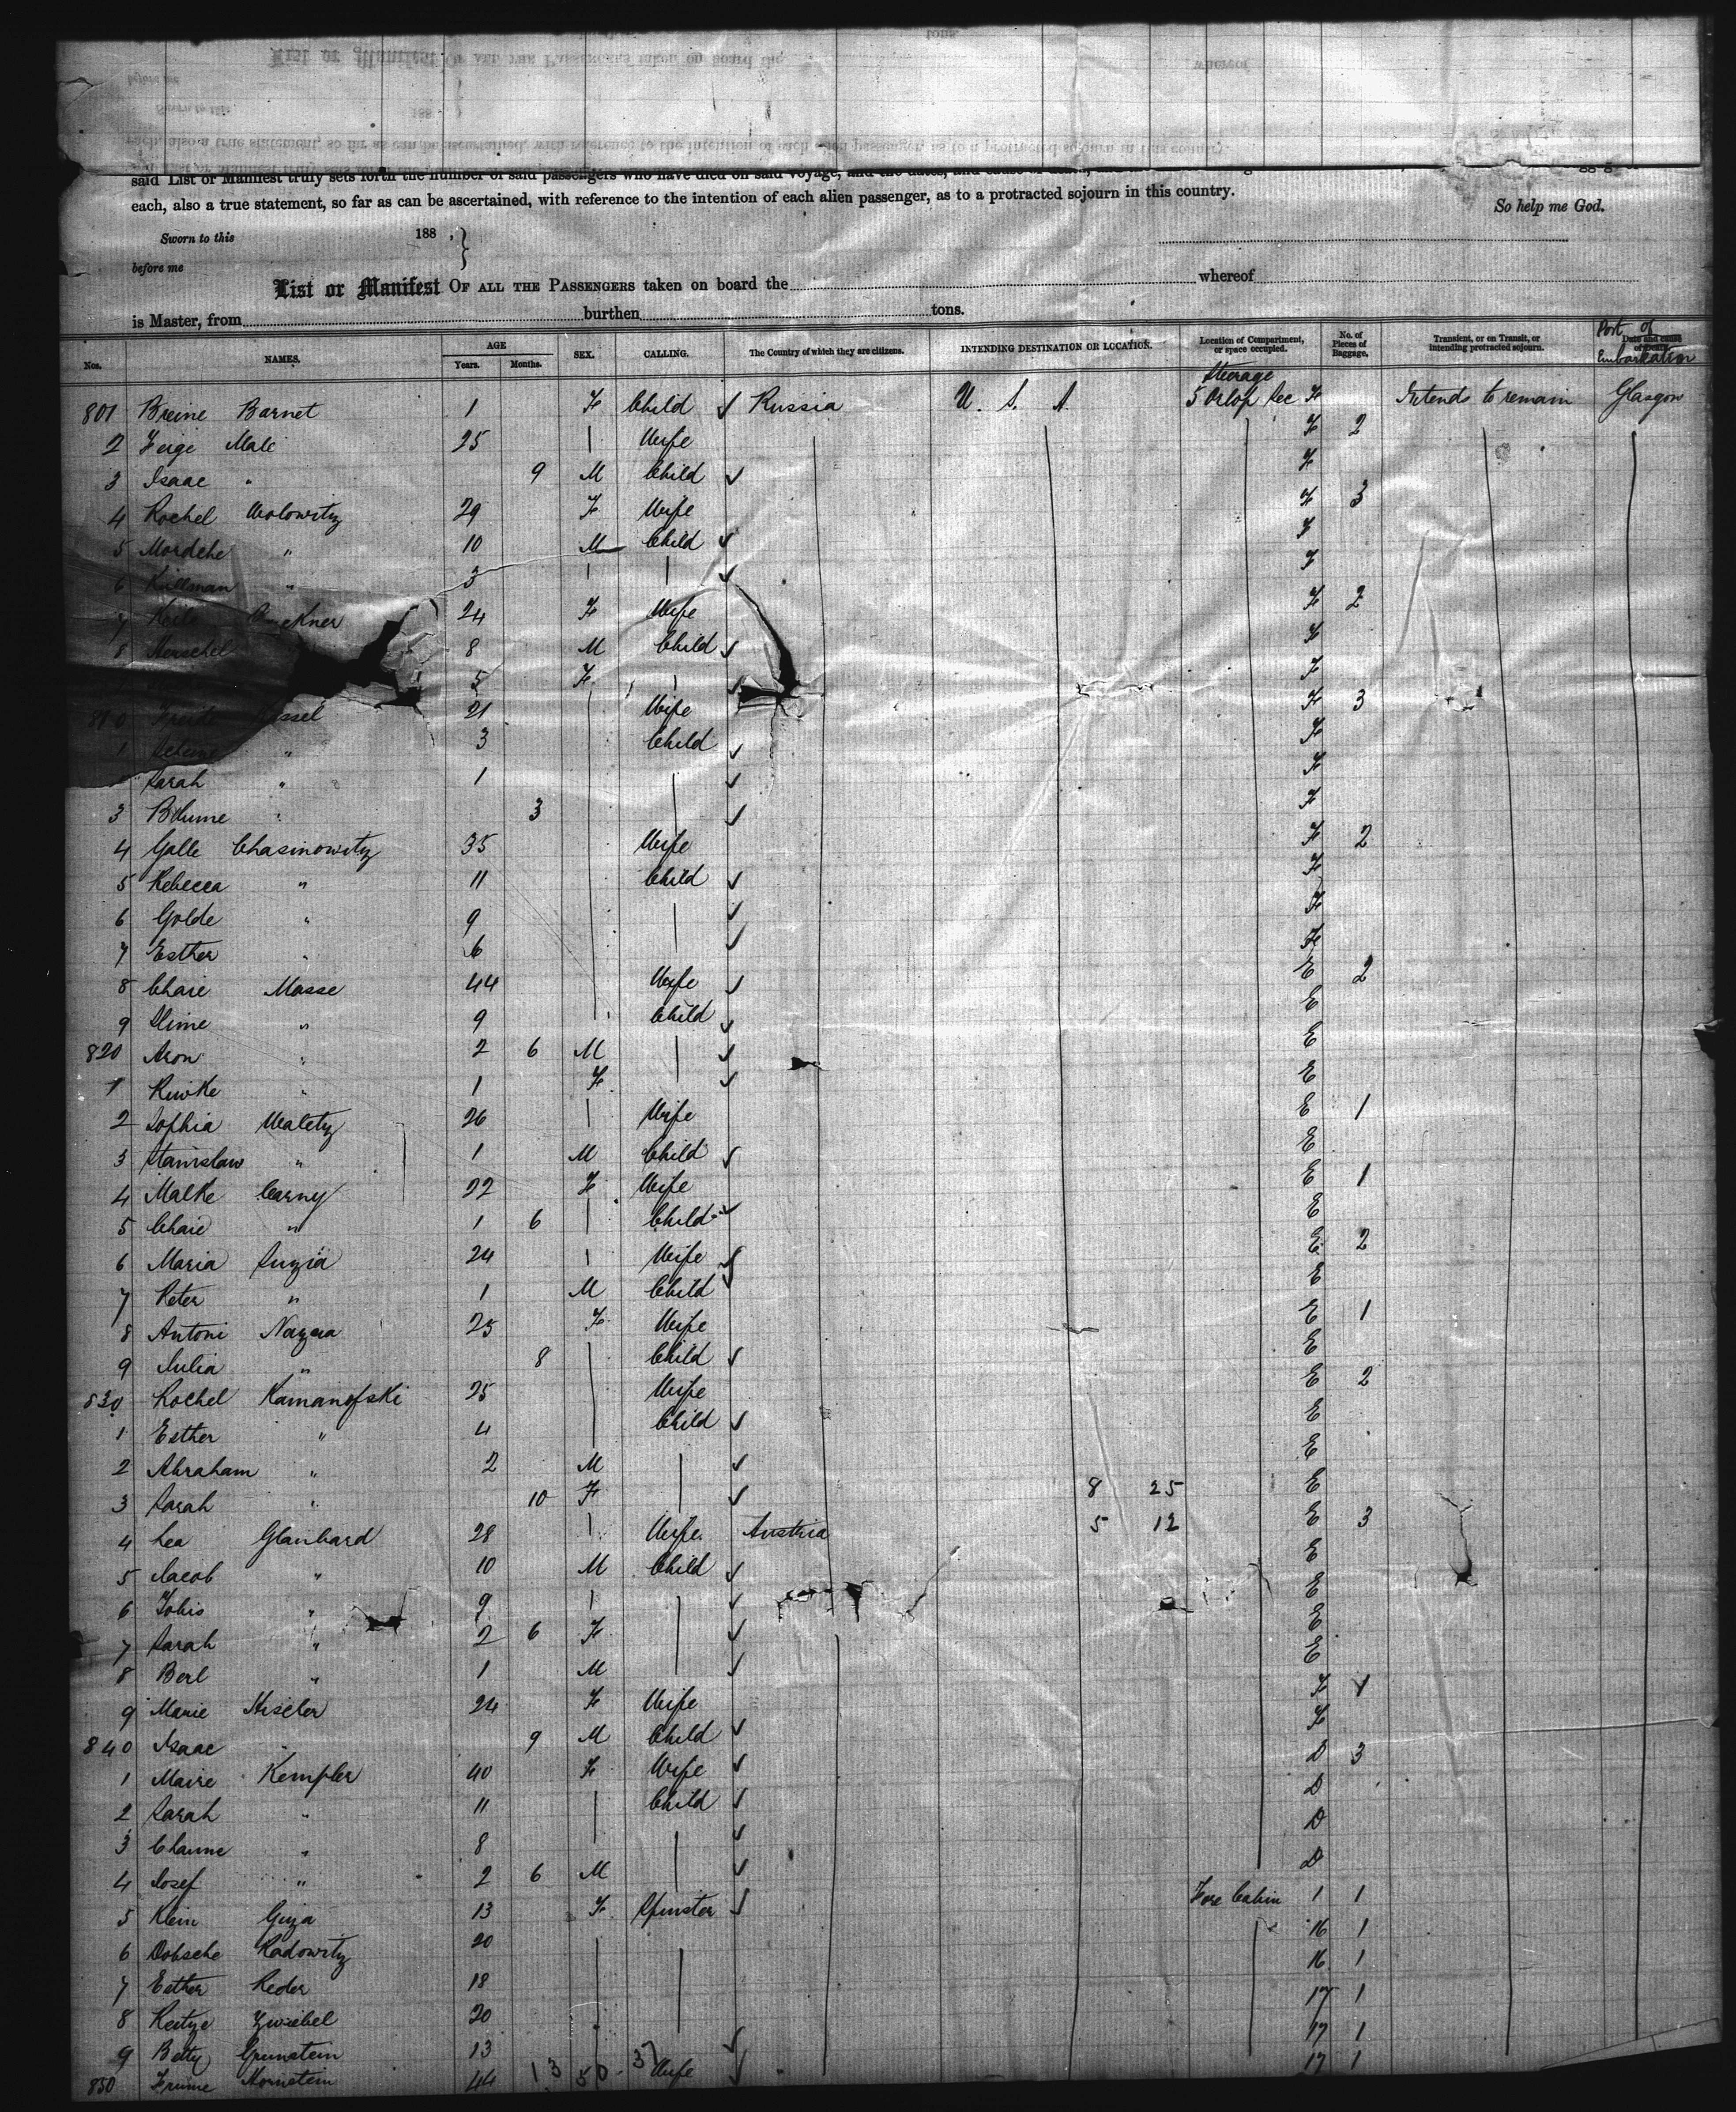 said List or Manifest truly sets forth the number of said passengers who have died on said voyage, and the dates, and cause of death,
each, also a true statement, so far as can be ascertained, with reference to the intention of each alien passenger, as to a protracted sojourn in this country.
So help me God.
Sworn to this 188 ,
before me
List or Manifest OF ALL THE PASSENGERS taken on board the whereof
is Master, from burthen tons.
Nos. NAMES. AGE Years. Months. SEX. CALLING. The Country of which they are citizens. INTENDING DESTINATION OR LOCATION. Location of Compartment, or space occupied. No. of Pieces of Baggage. Transient, or on Transit, or intending protracted sojourn. Port of Embarkation
Steerage
801 Breine Barnet 1 F Child ✓ Russia U. S. A 5 Orlop Sec F Intends to remain Glasgow
2 Feige Male 25 | Wife F 2
3 Isaac " 9 M Child ✓ F
4 Rochel Wolowitz 29 F Wife F 3
5 Mordche " 10 M Child ✓ F
6 Killman " 3 | | ✓ F
7 Keile 24 F Wife F 2
8 Herschel 8 M Child ✓ F
5 F | ✓ F
810 21 Wife F 3
1 " 3 Child ✓ F
Sarah " 1 | ✓ F
3 Blume " 3 | ✓ F
4 Galle Chasinowitz 35 Wife F 2
5 Rebecca " 11 Child ✓ F
6 Golde " 9 | ✓ F
7 Esther " 6 | ✓ F
8 Chaie Masse 44 Wife ✓ E 2
9 Slime " 9 Child ✓ E
820 Aron " 2 6 M | ✓ E
1 Riwke " 1 F | ✓ E
2 Sophia Waletz 26 | Wife E 1
3 Stanislaw " 1 M Child ✓ E
4 Malke Czarny 22 F Wife E 1
5 Chaie " 1 6 | Child ✓ E
6 Maria Suzia 24 | Wife ✓ E 2
7 Peter " 1 M Child ✓ E
8 Antoni 25 F Wife E 1
9 Julia " 8 | Child ✓ E
830 Rochel Kamanofski 25 Wife E 2
1 Esther " 4 Child ✓ E
2 Abraham " 2 M | ✓ E
3 Sarah " 10 F | ✓ 8 25 E
4 Lea Glanhard 28 | Wife Austria 5 12 E 3
5 Jacob " 10 M Child ✓ E
6 Tobis " 9 | | ✓ E
7 Sarah " 2 6 F | ✓ E
8 Berl " 1 M | ✓ E
9 Marie 24 F Wife F 1
840 Isaac " 9 M Child ✓ F
1 Maire Kempler 40 F Wife ✓ D 3
2 Sarah " 11 | Child ✓ D
3 Channe " 8 | | ✓ D
4 Josef " 2 6 M | ✓ D
5 Klein Giza 13 F Spinster ✓ Fore Cabin 1 1
6 Dobsche Radowitz 20 16 1
7 Esther Reder 18 16 1
8 Reitze Zwiebel 20 17 1
9 Betty Grunstein 13 ✓ 17 1
850 Frume Mornstein 44 13 50 37 Wife ✓ 17 1